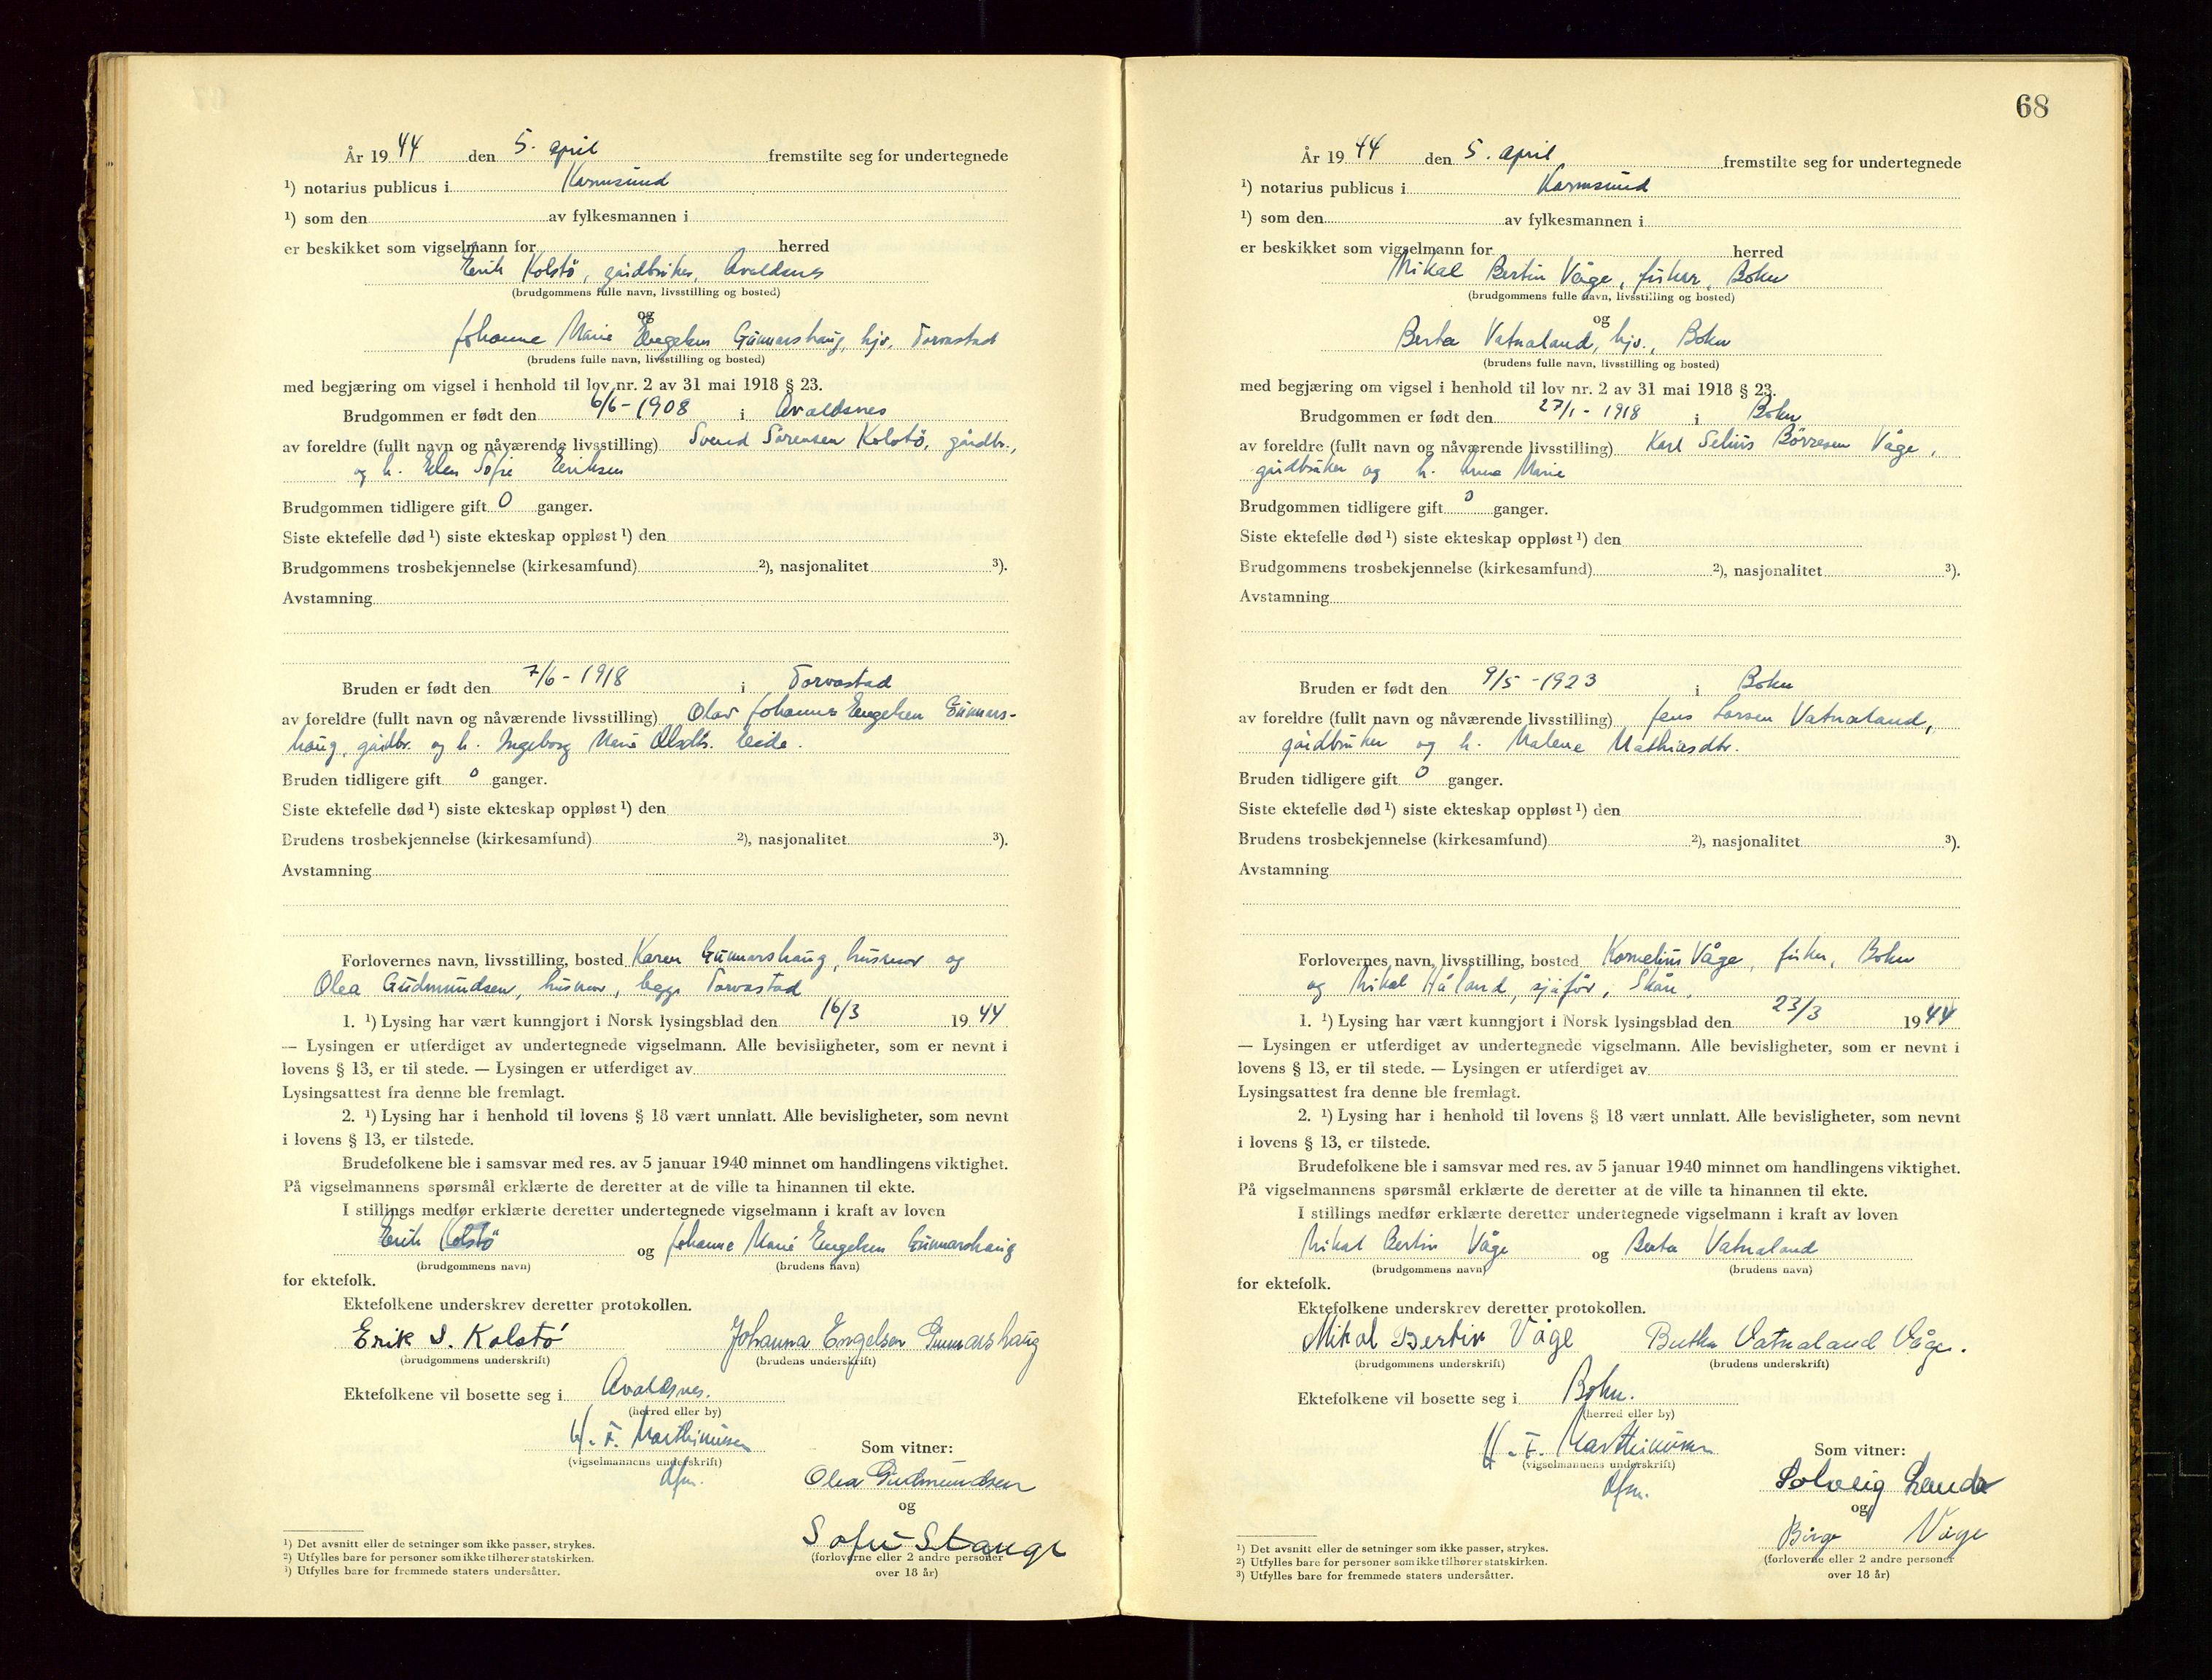 År 1944 den 5. april fremstilte seg for undertegnede
¹) notarius publicus i Karmsund
¹) som den av fylkesmannen i
er beskikket som vigselmann for herred
Erik Kolstö, gårdbruker, Avaldsnes
(brudgommens fulle navn, livsstilling og bosted)
og
Johanne Marie Engelsen Gunnarshaug, hjv, Torvastad
(brudens fulle navn, livsstilling og bosted)
med begjæring om vigsel i henhold til lov nr. 2 av 31 mai 1918 § 23.
Brudgommen er født den 6/6 - 1908 i Avaldsnes
av foreldre (fullt navn og nåværende livsstilling) Svend Sørensen Kolstö, gårdbr.,
og h. Elen Sofie Eriksen
Brudgommen tidligere gift 0 ganger.
Siste ektefelle død ¹) siste ekteskap oppløst ¹) den
Brudgommens trosbekjennelse (kirkesamfund) ²), nasjonalitet ³).
Avstamning
Bruden er født den 7/6 - 1918 i Torvastad
av foreldre (fullt navn og nåværende livsstilling) Olav Johannes Engelsen Gunnars-
haug, gårdbr. og h. Ingeborg Marie Olsdtr.
Bruden tidligere gift 0 ganger.
Siste ektefelle død ¹) siste ekteskap oppløst ¹) den
Brudens trosbekjennelse (kirkesamfund) ²), nasjonalitet ³).
Avstamning
Forlovernes navn, livsstilling, bosted Karen Gunnarshaug, husmor og
Olea Gudmundsen, husmor, begge Torvastad
1. ¹) Lysing har vært kunngjort i Norsk lysingsblad den 16/3 1944
— Lysingen er utferdiget av undertegnede vigselmann. Alle bevisligheter, som er nevnt i
lovens § 13, er til stede. — Lysingen er utferdiget av
Lysingsattest fra denne ble fremlagt.
2. ¹) Lysing har i henhold til lovens § 18 vært unnlatt. Alle bevisligheter, som nevnt
i lovens § 13, er tilstede.
Brudefolkene ble i samsvar med res. av 5 januar 1940 minnet om handlingens viktighet.
På vigselmannens spørsmål erklærte de deretter at de ville ta hinannen til ekte.
I stillings medfør erklærte deretter undertegnede vigselmann i kraft av loven
Erik Kolstö og Johanne Marie Engelsen Gunnarshaug
(brudgommens navn) (brudens navn)
for ektefolk.
Ektefolkene underskrev deretter protokollen.
Erik S. Kolstö Johanna Engelsen Gunnarshaug
(brudgommens underskrift) (brudens underskrift)
Ektefolkene vil bosette seg i Avaldsnes.
(herred eller by)
F. Marthinussen
(vigselmannens underskrift)
Som vitner:
Olea Gudmundsen
og
Sofie Stange
(forloverne eller 2 andre personer
over 18 år)
¹) Det avsnitt eller de setninger som ikke passer, strykes.
²) Utfylles bare for personer som ikke tilhører statskirken.
³) Utfylles bare for fremmede staters undersåtter.
68
År 1944 den 5. april fremstilte seg for undertegnede
¹) notarius publicus i Karmsund
¹) som den av fylkesmannen i
er beskikket som vigselmann for herred
Mikal Bertin Våge, fisker, Bokn
(brudgommens fulle navn, livsstilling og bosted)
og
Berta Vatnaland, hjv., Bokn
(brudens fulle navn, livsstilling og bosted)
med begjæring om vigsel i henhold til lov nr. 2 av 31 mai 1918 § 23.
Brudgommen er født den 27/1 - 1918 i Bokn
av foreldre (fullt navn og nåværende livsstilling) Karl Selius Børresen Våge,
gårdbruker og h. Anna Marie
Brudgommen tidligere gift 0 ganger.
Siste ektefelle død ¹) siste ekteskap oppløst ¹) den
Brudgommens trosbekjennelse (kirkesamfund) ²), nasjonalitet ³).
Avstamning
Bruden er født den 9/5 - 1923 i Bokn
av foreldre (fullt navn og nåværende livsstilling) Jens Larsen Vatnaland,
gårdbruker og h. Malene Mathiasdtr.
Bruden tidligere gift 0 ganger.
Siste ektefelle død ¹) siste ekteskap oppløst ¹) den
Brudens trosbekjennelse (kirkesamfund) ²), nasjonalitet ³).
Avstamning
Forlovernes navn, livsstilling, bosted Kornelius Våge, fisker, Bokn
og Mikal Håland, sjåför, Skåre,
1. ¹) Lysing har vært kunngjort i Norsk lysingsblad den 23/3 1944
— Lysingen er utferdiget av undertegnede vigselmann. Alle bevisligheter, som er nevnt i
lovens § 13, er til stede. — Lysingen er utferdiget av
Lysingsattest fra denne ble fremlagt.
2. ¹) Lysing har i henhold til lovens § 18 vært unnlatt. Alle bevisligheter, som nevnt
i lovens § 13, er tilstede.
Brudefolkene ble i samsvar med res. av 5 januar 1940 minnet om handlingens viktighet.
På vigselmannens spørsmål erklærte de deretter at de ville ta hinannen til ekte.
I stillings medfør erklærte deretter undertegnede vigselmann i kraft av loven
Mikal Bertin Våge og Berta Vatnaland
(brudgommens navn) (brudens navn)
for ektefolk.
Ektefolkene underskrev deretter protokollen.
Mikal Bertin Våge Vatnaland Våge.
(brudgommens underskrift) (brudens underskrift)
Ektefolkene vil bosette seg i Bokn.
(herred eller by)
F. Marthinussen
(vigselmannens underskrift)
Som vitner:
Solveig
og
Våge
(forloverne eller 2 andre personer
over 18 år)
¹) Det avsnitt eller de setninger som ikke passer, strykes.
²) Utfylles bare for personer som ikke tilhører statskirken.
³) Utfylles bare for fremmede staters undersåtter.